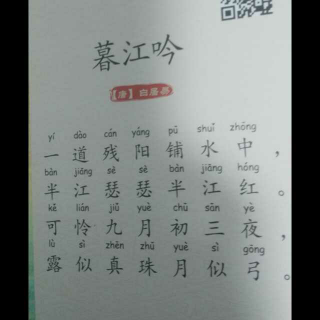 暮江吟
【唐】白居易
yí dào cán yáng pū shuǐ zhōng
一道残阳铺水中，
bàn jiāng sè sè bàn jiāng hóng
半江瑟瑟半江红。
kě lián jiǔ yuè chū sān yè
可怜九月初三夜，
lù sì zhēn zhū yuè sì gōng
露似真珠月似弓。